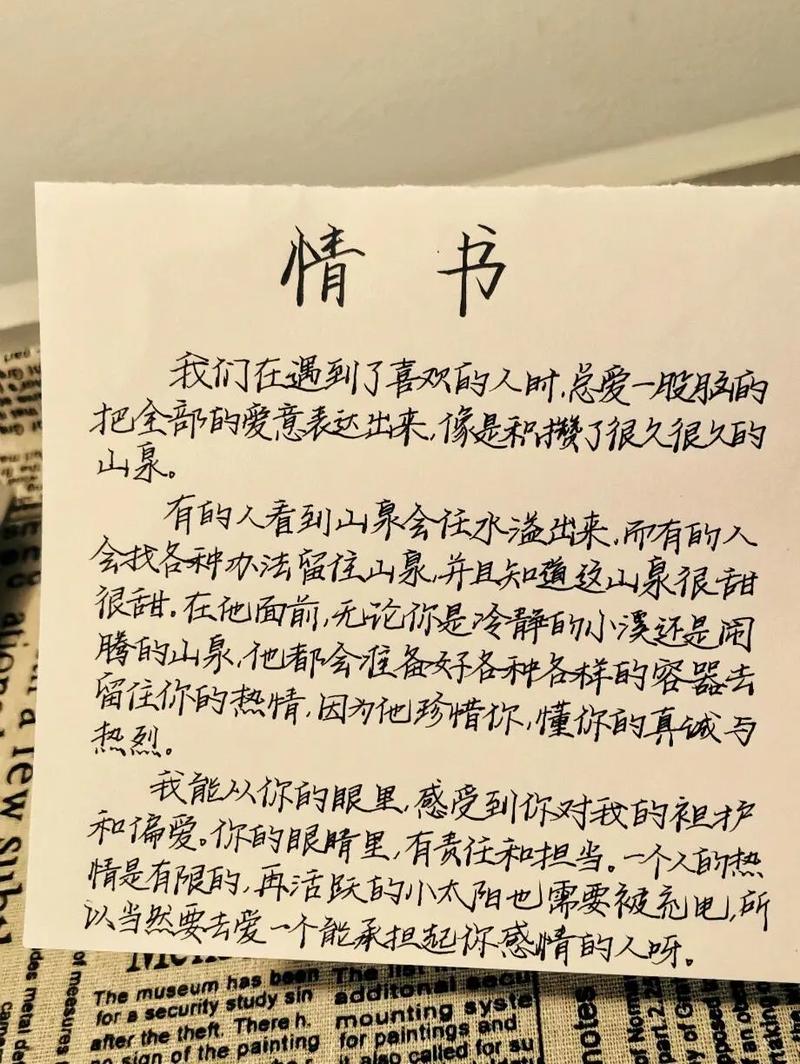 情书
我们在遇到了喜欢的人时,总爱一股脑的
把全部的爱意表达出来,像是积攒了很久很久的
山泉。
有的人看到山泉会任水溢出来,而有的人
会找各种办法留住山泉,并且知道这山泉很甜
很甜。在他面前,无论你是冷静的小溪还是闹
腾的山泉,他都会准备好各种各样的容器去
留住你的热情,因为他珍惜你,懂你的真诚与
热烈。
我能从你的眼里,感受到你对我的袒护
和偏爱。你的眼睛里,有责任和担当。一个人的热
情是有限的,再活跃的小太阳也需要被充电,所
以当然要去爱一个能承担起你感情的人呀。
The museum has been
for a security study sin
after the theft. There h
no sign of the painting
The list
additonal secu
mounting syste
for paintings and
it also called for su
notes
a few subj